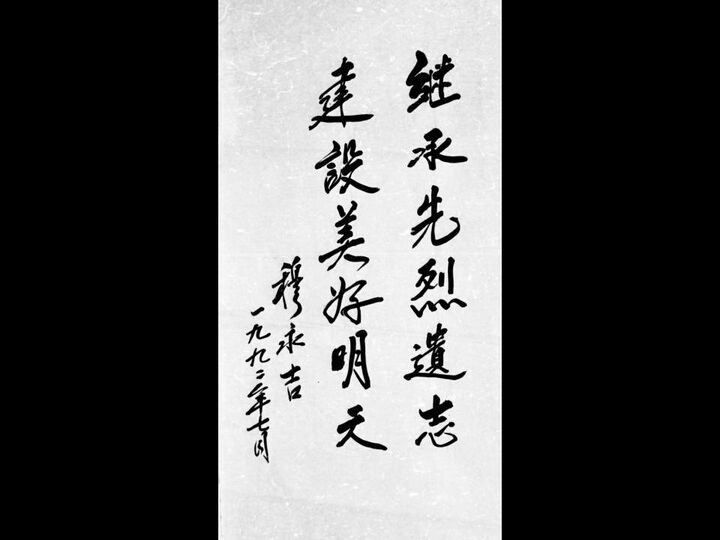 继承先烈遺志
建設美好明天
穆永吉
一九九二年七月